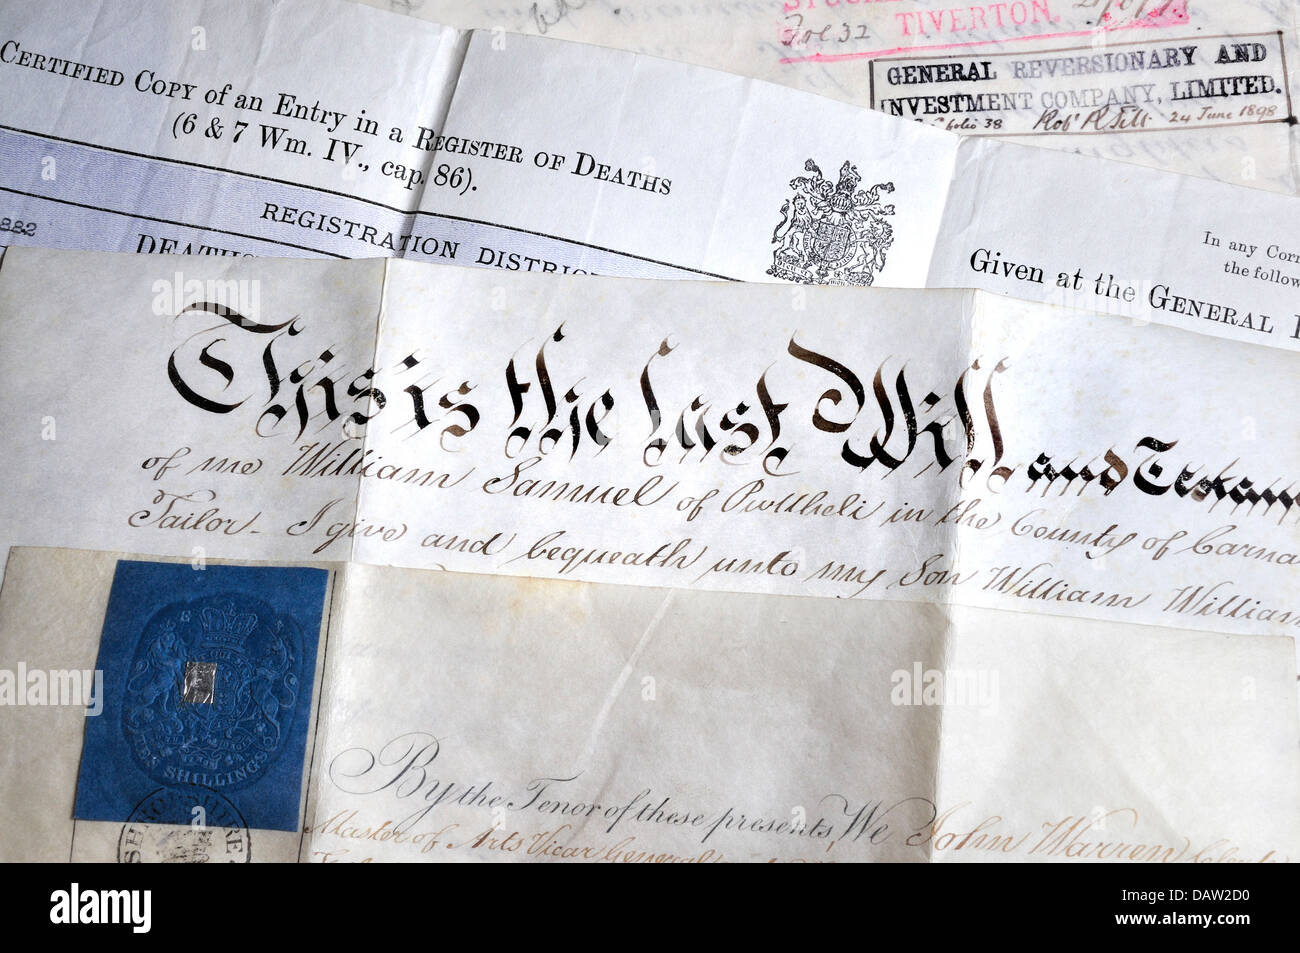 TIVERTON.
Fol 32
GENERAL REVERSIONARY AND
INVESTMENT COMPANY, LIMITED.
folio 38 24 June 1898
CERTIFIED COPY of an Entry in a REGISTER OF DEATHS
(6 & 7 Wm. IV., cap. 86).
REGISTRATION DISTRIC
882
DEATHS
In any Corr
the follow
Given at the GENERAL
This is the last Will and Testam
of me William Samuel of Pwllheli in the County of Carna
Tailor - I give and bequeath unto my Son William William
SHILLINGS
By the Tenor of these presents, We John Warren Clerk
Master of Arts Vicar General
alamy
a
alamy
Image ID: DAW2D0
www.alamy.com